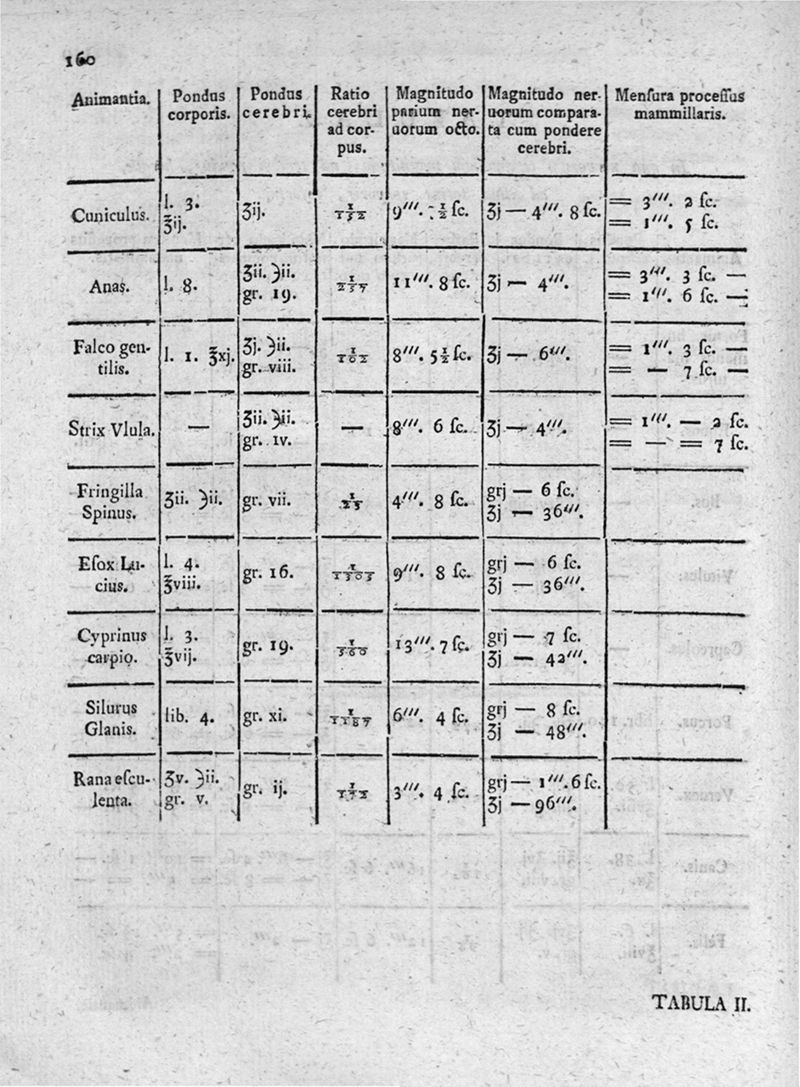 160
Animantia. Pondus corporis. Pondus cerebri. Ratio cerebri ad corpus. Magnitudo parium neruorum octo. Magnitudo neruorum comparata cum pondere cerebri. Menſura proceſſus mammillaris.
Cuniculus. l. 3. ℥ij. ʒij. 1/152 9‴. - 1/2 ſc. ʒj — 4‴. 8 ſc. = 3‴. 2 ſc.
= 1‴. 5 ſc.
Anas. l. 8. ʒii. ℈ii. gr. 19. 1/257 11‴. 8 ſc. ʒj — 4‴. = 3‴. 3 ſc. —
= 1‴. 6 ſc. —
Falco gentilis. l. 1. ℥xj. ʒj. ℈ii. gr. viii. 1/102 8‴. 5 1/2 ſc. ʒj — 6‴. = 1‴. 3 ſc. —
= — 7 ſc. —
Strix Vlula. — ʒii. ℈ii. gr. iv. — 8‴. 6 ſc. ʒj — 4‴. = 1‴. — 2 ſc.
= — = 7 ſc.
Fringilla Spinus. ʒii. ℈ii. gr. vii. 1/25 4‴. 8 ſc. grj — 6 ſc.
ʒj — 36‴.
Eſox Lucius. l. 4. ℥viii. gr. 16. 1/1305 9‴. 8 ſc. grj — 6 ſc.
ʒj — 36‴.
Cyprinus carpio. l. 3. ℥vij. gr. 19. 1/560 13‴. 7 ſc. grj — 7 ſc.
ʒj — 42‴.
Silurus Glanis. lib. 4. gr. xi. 1/1187 6‴. 4 ſc. grj — 8 ſc.
ʒj — 48‴.
Rana eſculenta. ʒv. ℈ii. gr. v. gr. ij. 1/172 3‴. 4 ſc. grj — 1‴. 6 ſc.
ʒj — 96‴.
TABULA II.